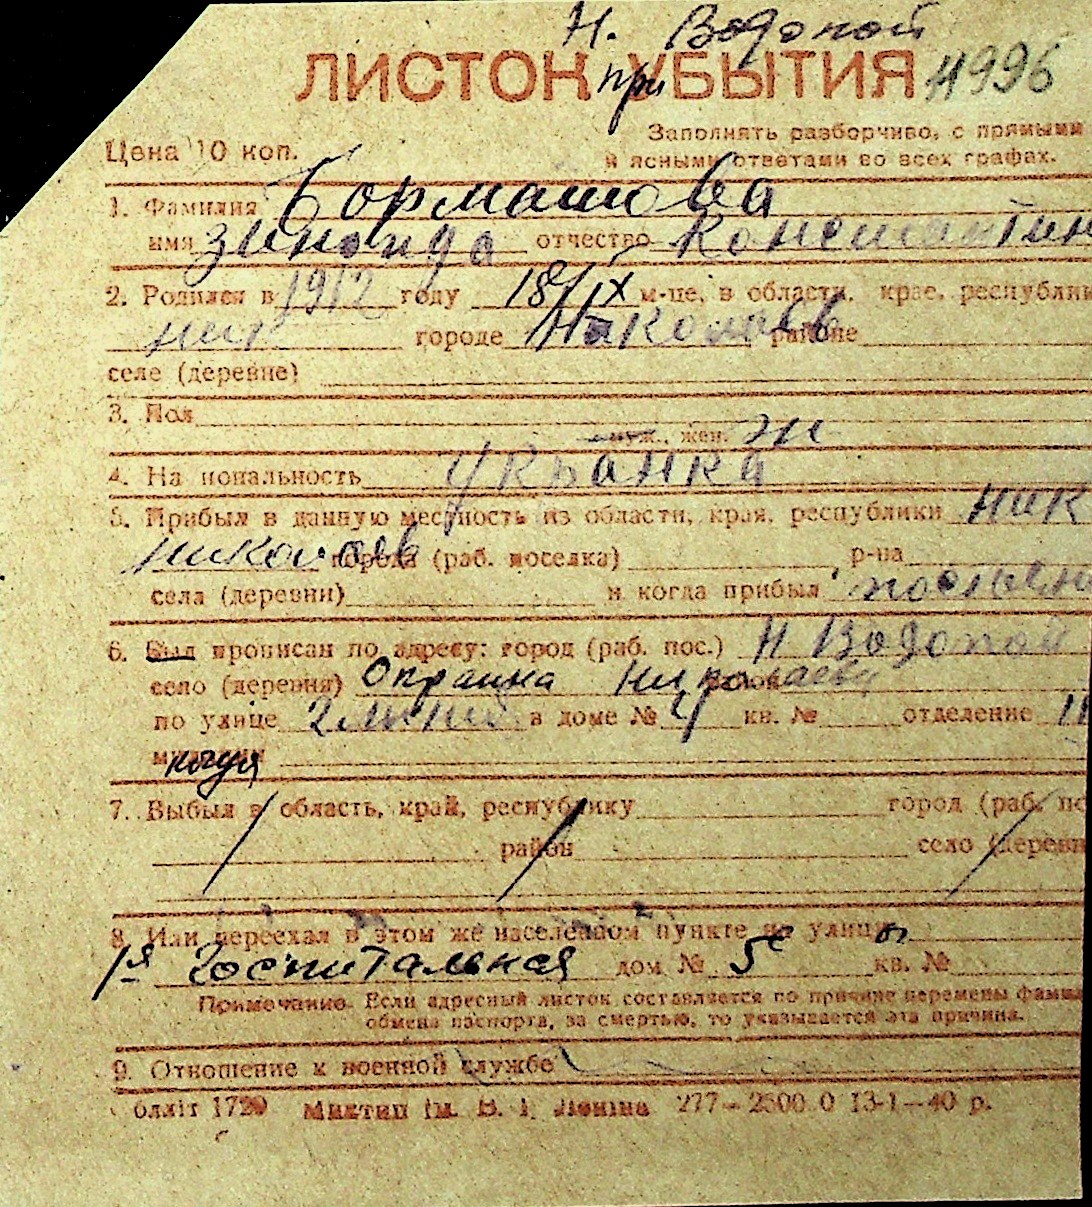 Н. Водопой
ЛИСТОК при УБЫТИЯ 4996
Цена 10 коп.
Заполнять разборчиво, с прямыми
и ясными ответами во всех графах.
1. Фамилия Бормашова
имя Зинаида отчество Константин
2. Родился в 1912 году 18/IX м-це, в области, крае, республик
ник. городе Николаев районе
селе (деревне)
3. Пол
муж., жен. ж
4. На иональность Укранка
5. Прибыл в данную местность из области, края, республики ник
Николаев города (раб. поселка) р-на
села (деревни) и когда прибыл постоян
6. Был прописан по адресу: город (раб. пос.) Н Водопой
село (деревня) Окраина Николаева
по улице 2 линия в доме № 4 кв. № отделение 11
милиции
7. Выбыл в область, край, республику город (раб. по
район село (деревн
8. Или переехал в этом же населенном пункте на улицы
1я Госпитальная дом № 5с кв. №
Примечание. Если адресный листок составляется по причине перемены фами
обмена паспорта, за смертью, то указывается эта причина.
9. Отношение к военной службе
блліт 1720 Миктип ім. В. І. Леніна 277—2500.0 13-1—40 р.